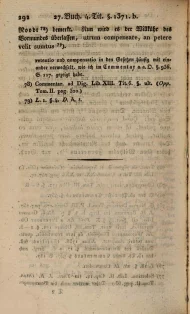 292 27. Buch. 4. Tit. §. 1371. b.
Noodt 78) bemerkt. Nun wird es der Willkühr des
Vormundes überlassen, utrum compensare, an petere
velit sumtus 79).
retentio und compensatio in den Gesetzen häufig mit ein-
ander verwechselt, wie ich im Commentar
S. 117. gezeigt habe.
78) Commentar. ad Dig. Lib. XIII. Tit. 6. (Opp.
Tom. II. pag.
79) L. 1. §. 4. D. h. t.